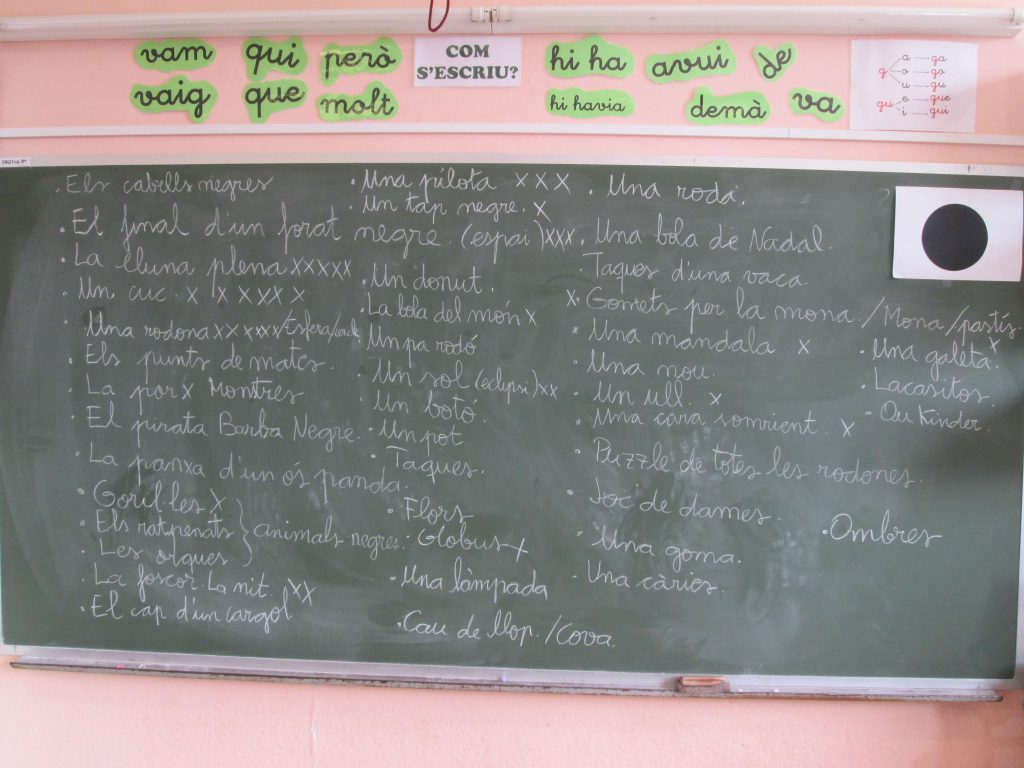 vam qui però COM S'ESCRIU? hi ha avui de
vaig que molt hi havia demà va
g a ga
o go
u gu
gu e gue
i gui
. Els cabells negres
. El final d'un forat negre. (espai) xxx
. La lluna plena xxxxx
. Un cuc. x x x x x
. Una rodona xx xxxx/Esfera/
. Els punts de mates.
. La por x Montres
. El pirata Barba Negre.
. La panxa d'un ós panda.
. Goril·les x
. Els ratpenats } animals negres.
. Les orques
. La foscor La nit. xx
. El cap d'un cargol
. Una pilota xxx
. Un tap negre. x
. Un donut.
. La bola del món x
. Un pa rodó
. Un sol (eclipsi) xx
. Un botó.
. Un pot
. Taques.
. Flors
. Globus x
. Una làmpada
. Cau de llop. /Cova.
. Una roda.
. Una bola de Nadal.
. Taques d'una vaca.
x. Gomets per la mona. /Mona /pastís. x
. Una mandala x
. Una nou.
. Un ull. x
. Una cara somrient. x
. Puzzle de totes les rodones.
. Joc de dames.
. Una goma.
. Una càries.
. Una galeta.
. Lacasitos.
. Ou Kinder.
. Ombres